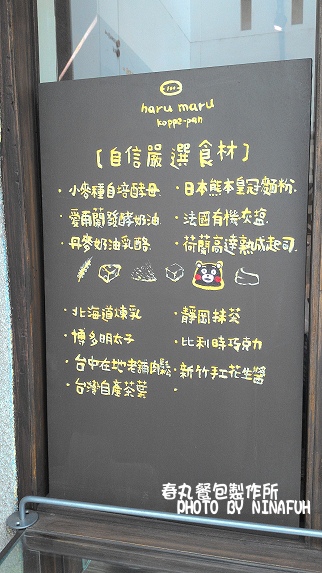 haru maru
koppe-pan
[自信嚴選食材]
・小麥種自培酵母 ・日本熊本皇冠麵粉
・愛爾蘭發酵奶油 ・法國有機灰塩
・丹麥奶油乳酪 ・荷蘭高達熟成起司
・北海道煉乳 ・靜岡抹茶
・博多明太子 ・比利時巧克力
・台中在地老舖肉鬆 ・新竹手工花生醬
・台灣自產茶葉 ・
春丸餐包製作所
PHOTO BY NINAFUH